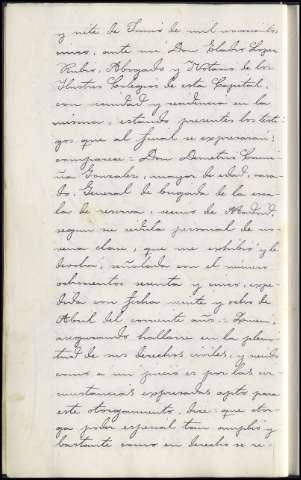 y siete de Junio de mil novecientos
cinco, ante mi Don Eladio Lopez
Rubio, Abogado y Notario de los
Ilustres Colegios de esta Capital,
con vecindad y residencia en la
misma, estando presentes los testi-
gos que al final se expresarán;
comparece = Don Demetrio
Gonzalez, mayor de edad, casa-
do, General de brigada de la esca-
la de reserva, vecino de Madrid,
segun su cedula personal de no-
vena clase, que me exhibió y le
devolví, señalada con el numero
ochocientos sesenta y cinco, expe-
dida con fecha veinte y ocho de
Abril del corriente año = Quien,
asegurando hallarse en la pleni-
tud de sus derechos civiles, y siendo
como a mi juicio es por las cir-
cunstancias expresadas apto para
este otorgamiento, dice = que otor-
ga poder especial tan amplio y
bastante como en derecho se re-